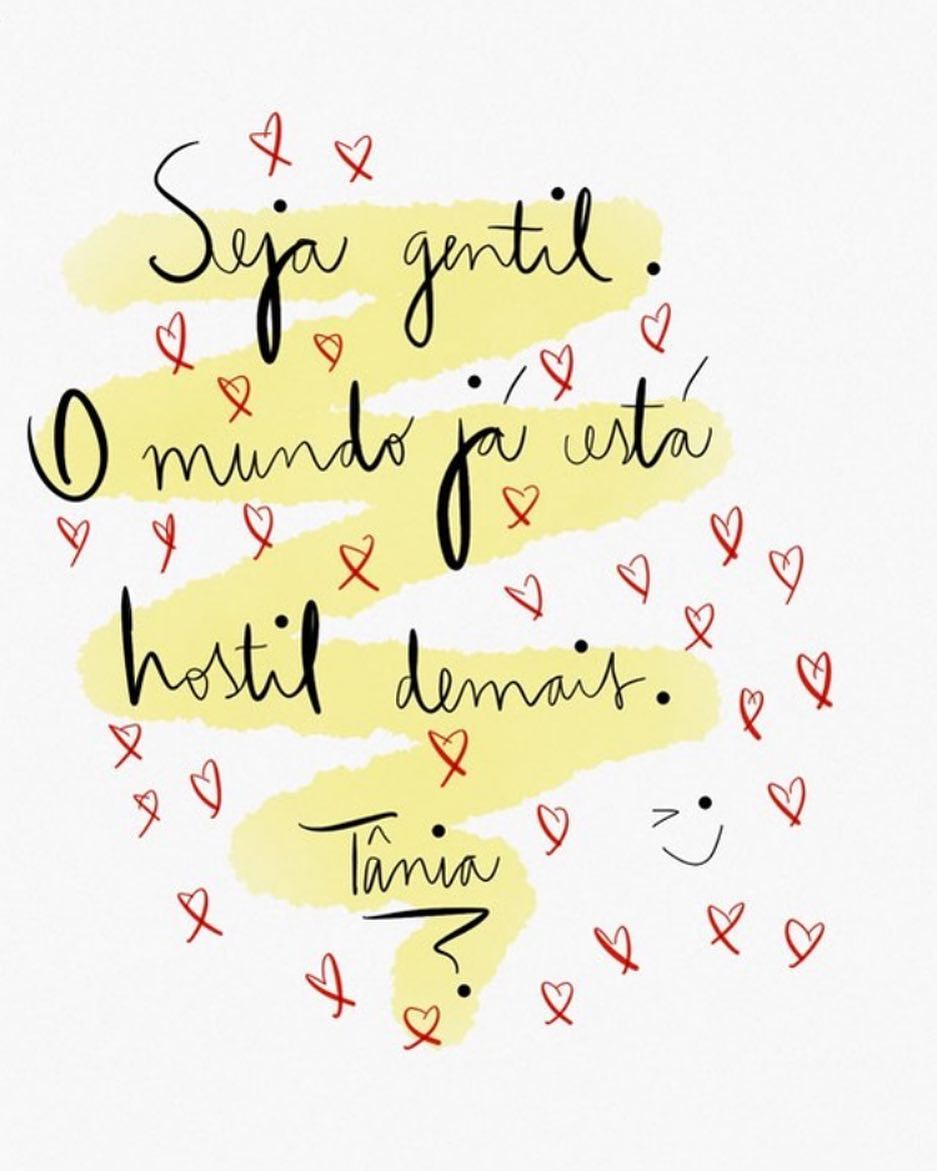 Seja gentil.
O mundo já está
hostil demais.
Tânia